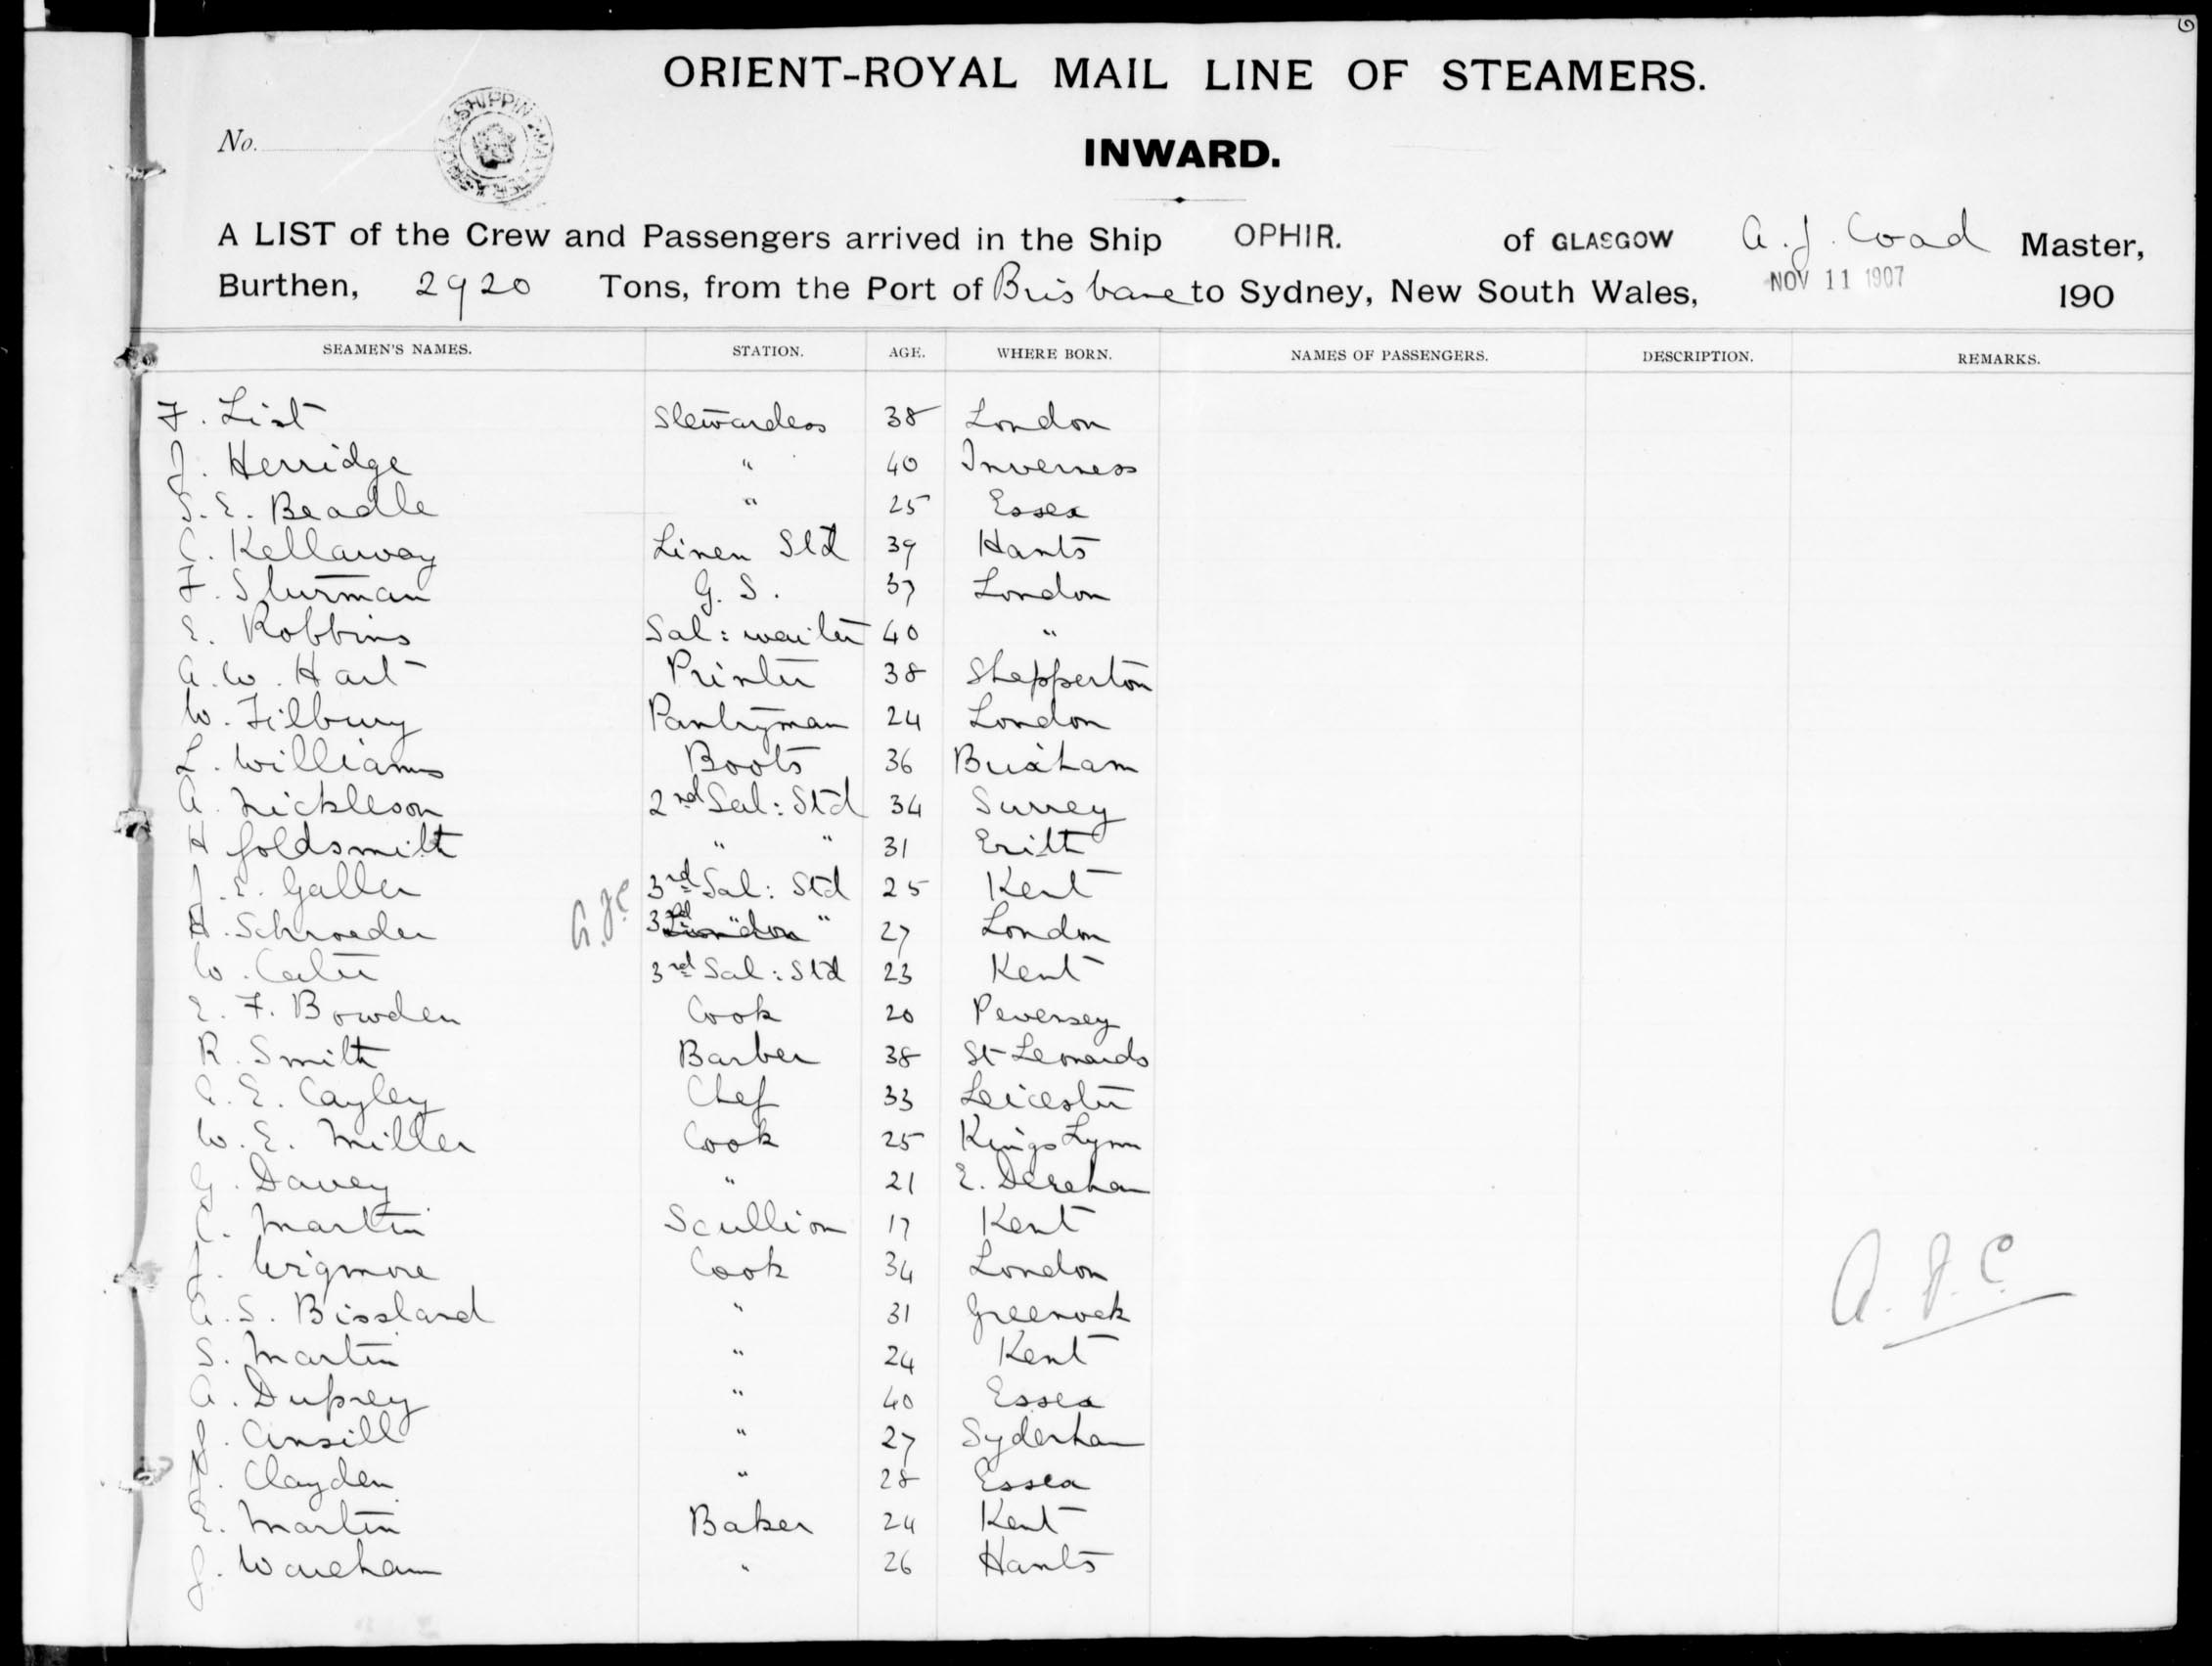 ORIENT-ROYAL MAIL LINE OF STEAMERS.
No.
INWARD.
A LIST of the Crew and Passengers arrived in the Ship OPHIR. of GLASGOW A. J. Coad Master,
Burthen, 2920 Tons, from the Port of Brisbane to Sydney, New South Wales, NOV 11 1907 190
SEAMEN'S NAMES. STATION. AGE. WHERE BORN. NAMES OF PASSENGERS. DESCRIPTION. REMARKS.
F. List Stewardess 38 London
J. Herridge " 40 Inverness
S. E. Beadle " 25 Essex
C. Kellaway Linen Std 39 Hants
F. Sturman G. S. 37 London
E. Robbins Sal: waiter 40 "
A. W. Hart Printer 38 Shepperton
W. Tilbury Pantryman 24 London
L. Williams Boots 36 Brixham
A. Nickleson 2nd Sal: Std 34 Surrey
H Goldsmith " " 31 Erith
J. E. Galler 3rd Sal: Std 25 Kent
H. Schroeder A.J.C 3rd London " 27 London
W. Cater 3rd Sal: Std 23 Kent
E. F. Bowden Cook 20 Pevensey
R. Smith Barber 38 St Leonards
A. E. Cayley Chef 33 Leicester
W. E. Miller Cook 25 Kings Lynn
G. Davey " 21 E. Dereham
C. Martin Scullion 17 Kent
J. Wigmore Cook 34 London
A. S. Bissland " 31 Greenock
S. Martin " 24 Kent
A. Duprey " 40 Essex
J. Ansill " 27 Sydenham
Clayden " 28 Essex
E. Martin Baker 24 Kent
J. Wareham " 26 Hants
A. J. C.